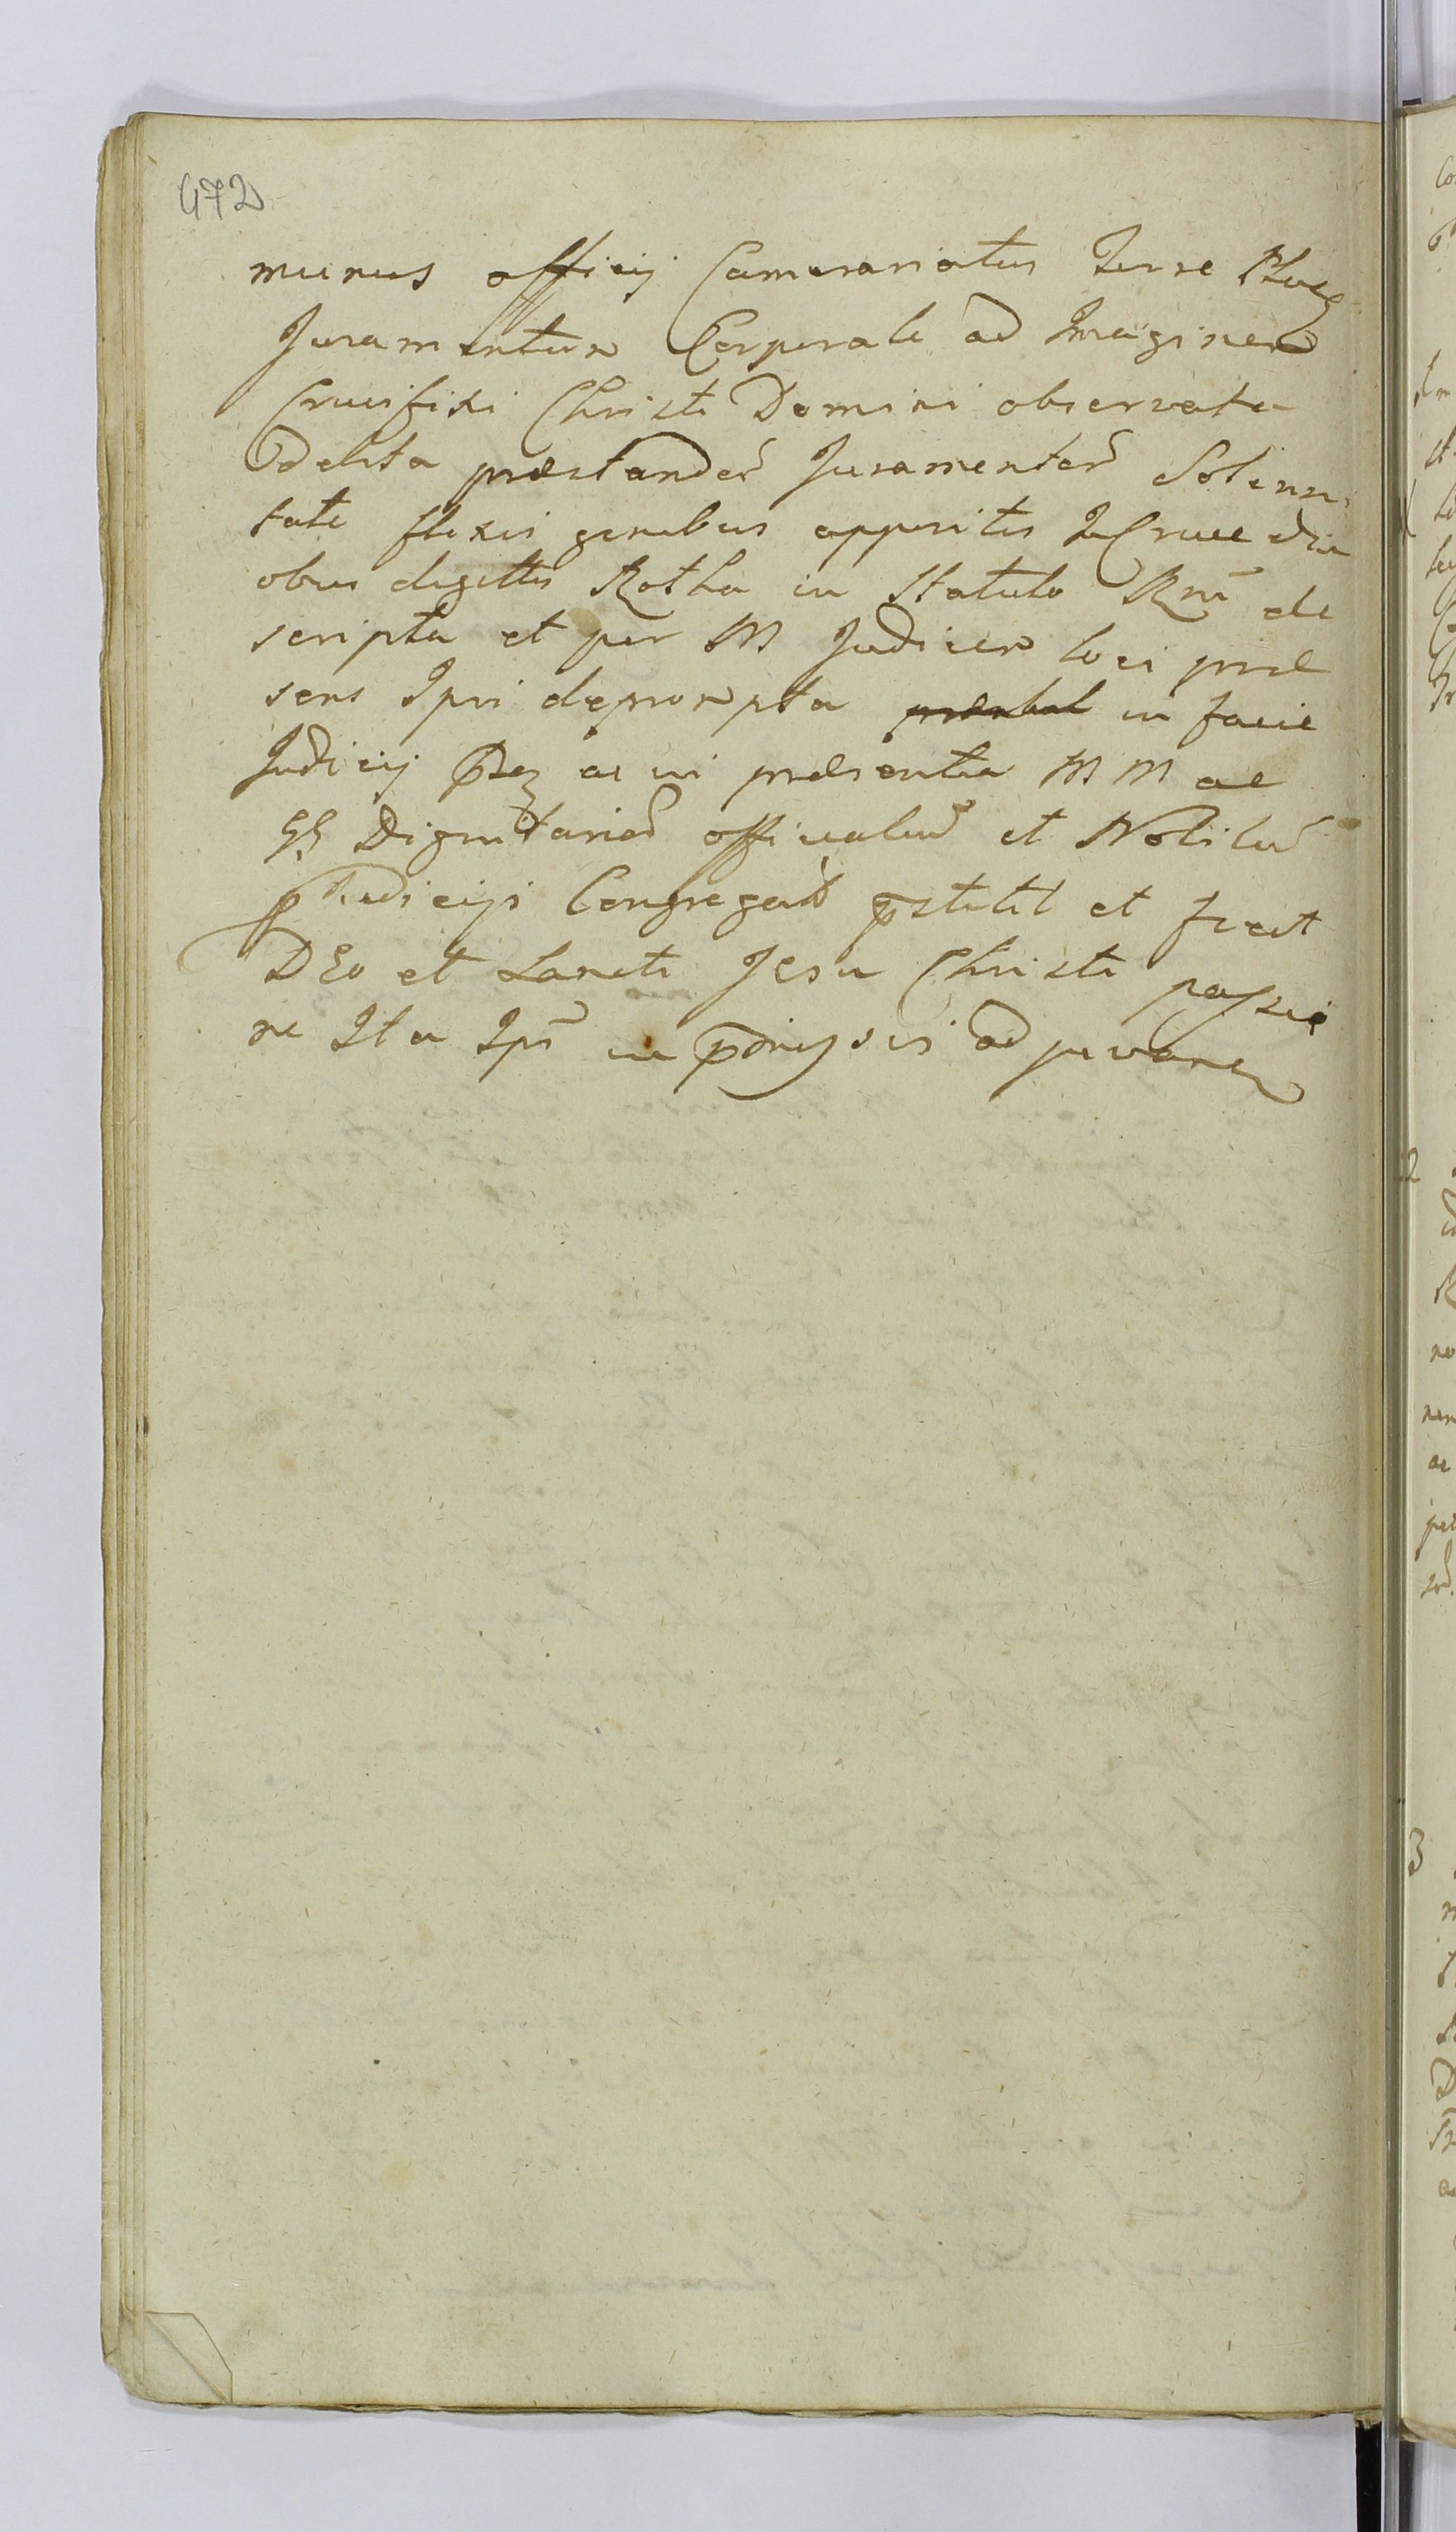 472
munus officij Camerariatus Terre Plocen
Juramentum Corporale ad Imaginem
Crucifixi Christi Domini observata
debita præstandor Juramentor Solenni
tate flexis genibus appositis In Cruce du
obus digittis Rotha in Statuto Rni de
scripta et per M Judicem loci præ
sens Ipsi deprompta in facie
Judicij ac in præsentia M M ac
GG Dignitarior officialiu et Nobiliu
Judicijs Congregat pstitit et fecit
DEo et Sancti JEsu Christi passio
ne Ita Ips in pmissis ad juvaren